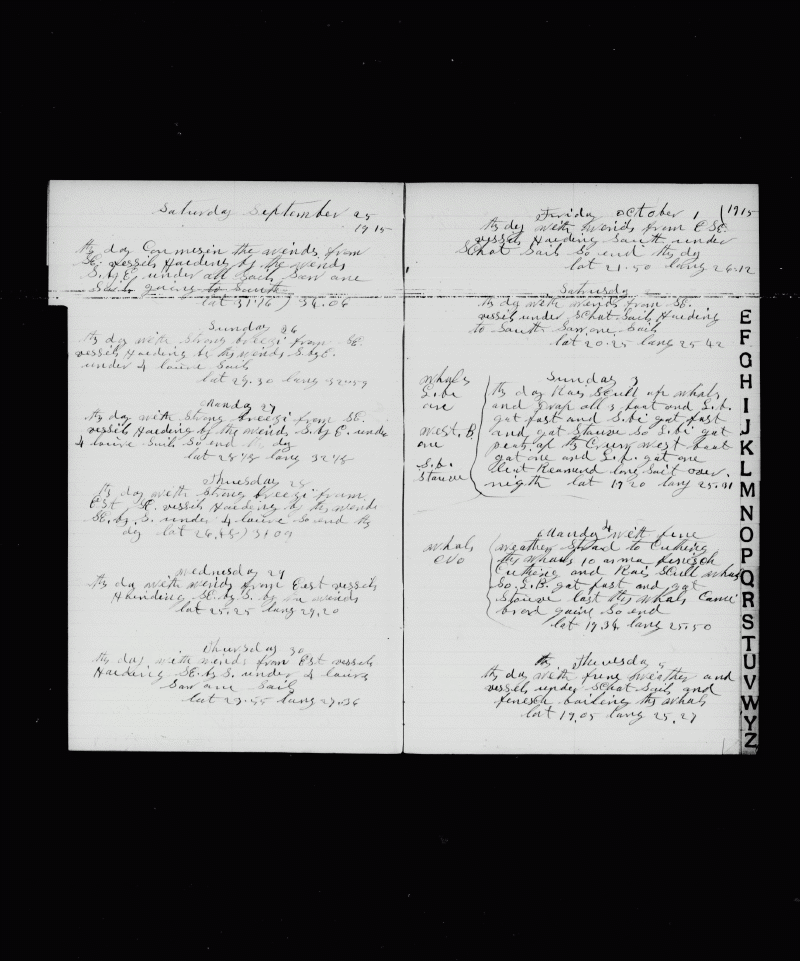 Saturday September 25
1915
this day Commesin the winds from
SE. vessels Haeding by the winds
S.byE under all Sails Saw one
Sail going to South
lat 31.16) 34.06
Sunday 26
this day with Strong breezi from SE.
vessils Haeding by this winds S.byE.
under 4 lauire Sails
lat 29.30 lang 32.59
Manday 27
this day with Strong breezi from SE.
vessils Haeding by this winds S.byE. under
4 lauire Sails So end this day
lat 28.48 lang 32.48
Thuesday 28
this day with Strong breezi from
Est SE. vessils Haeding by this winds
SE.by.S. under 4 lauire So end this
day lat 26.48) 31.09
Wednesday 29
this day with winds from East vessils
Haeinding SE.by S. by winds
lat 25.25 lang 29.20
Thursday 30
this day with winds from Est vessils
Haeding SE.by S. under 4 lauire
Saw one Sails
lat 23.55 lang 27.36
Friday October 1 (1915
this day with winds from ESE.
vessils Haeding South under
Schat Sail So end this day
lat 21.50 lang 26.12
Saturday
this day with winds from SE.
vessils under Schat Sails Haeding
to South Saw one Sails
lat 20.25 lang 25.42
Sunday 3
whals
S.bi
one
West.B.
one
S.B.
Stouve
this day Rais Scull of whals
and all 3 boat and L.b.
gat fast and S.bi gat fast
and gat Stouve So S.bi gat
of the Creuy west boat
gat one and L.b. gat one
but long Sait over
nigth lat 19.20 lang 25.31
whals
Manday 4 with fine
weather Strad to Cuthing
this whals 10 finisch
Cuthing and Rais Scull whals
So. S.B. gat fast and gat
Stouve last this whals Came
bord gaing So end
lat 19.34 lang 25.50
Thuesday 5
this day with fine weather and
vessils under Schat Sails and
finesch boiling this whals
lat 19.05 lang 25.27
E
F
G
H
I
J
K
L
M
N
O
P
Q
R
S
T
U
V
W
Y
Z